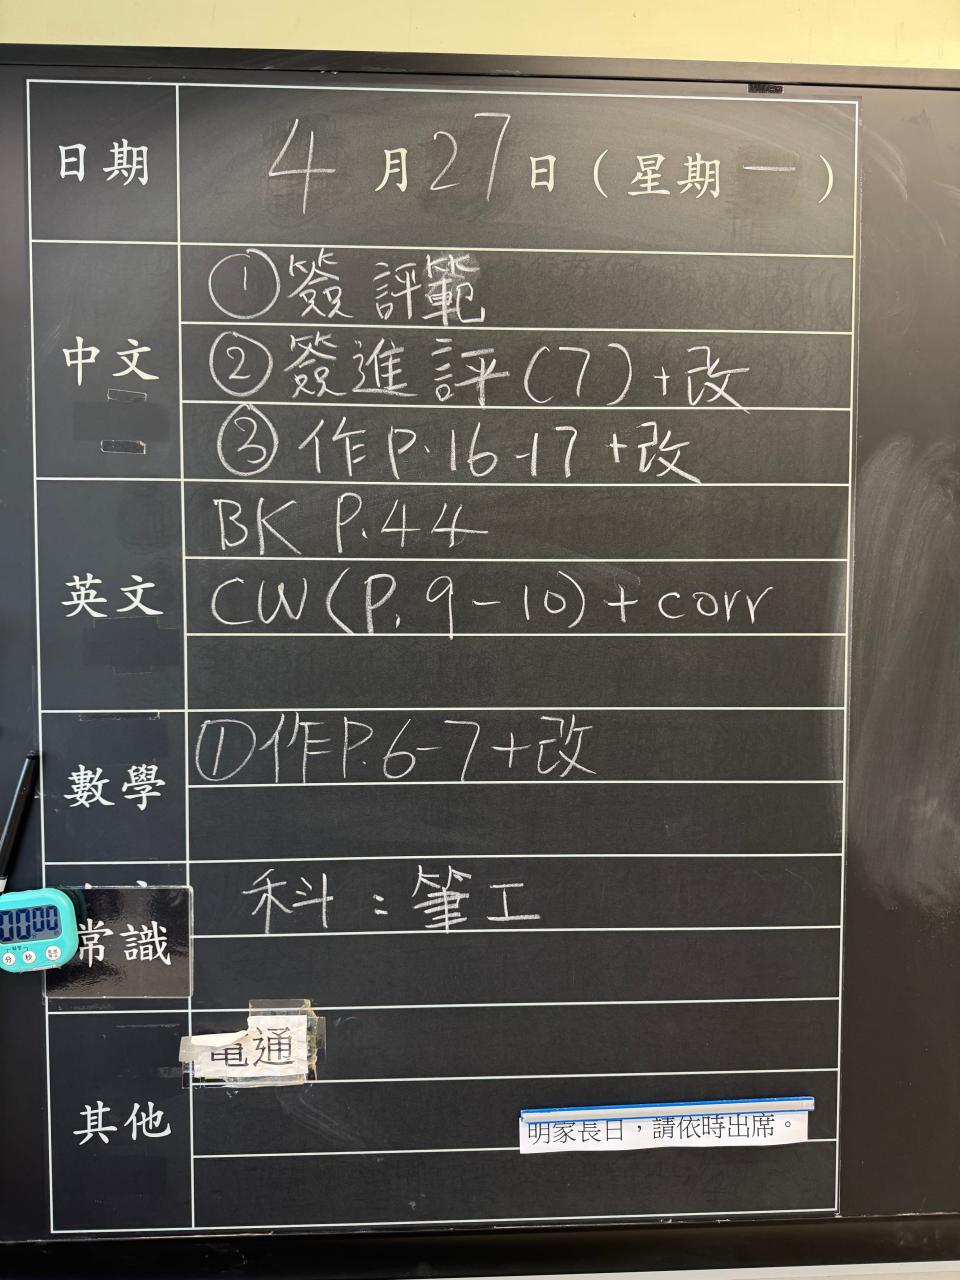 日期 4月27日(星期一)
中文
①簽評範
②簽進評(7)+改
③作P.16-17+改
英文
BK P.44
CW(P.9-10)+corr
數學
①作P.6-7+改
常識
科:筆工
其他
電通
明家長日，請依時出席。
00 00
分 秒